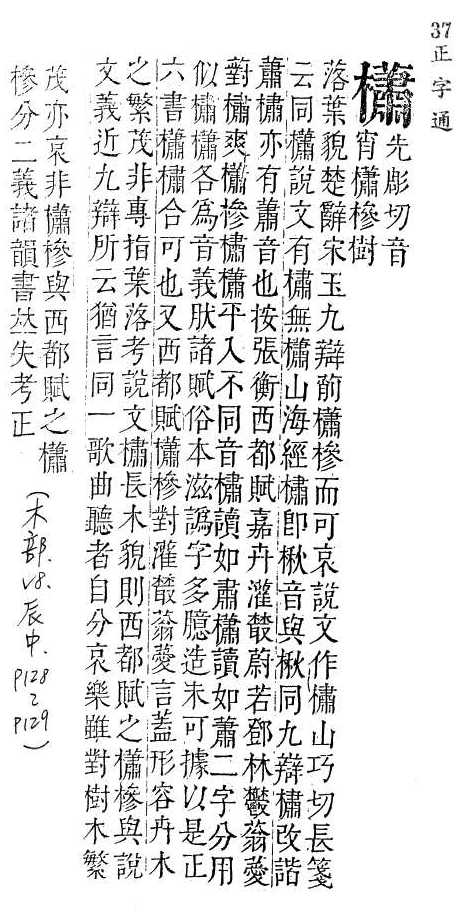 37正字通
櫹
先彫切音
宵櫹槮樹
落葉貌楚辭宋玉九辯萷櫹槮而可哀說文作橚山巧切長箋
云同櫹說文有橚無櫹山海經橚卽楸音與楸同九辯橚改諧
蕭橚亦有蕭音也按張衡西都賦嘉卉灌叢蔚若鄧林鬱蓊薆
薱橚爽櫹槮橚櫹平入不同音橚讀如肅櫹讀如蕭二字分用
似橚櫹各爲音義肰諸賦俗本滋譌字多臆造未可據以是正
六書櫹橚合可也又西都賦櫹槮對灌叢蓊薆言蓋形容卉木
之繁茂非專指葉落考說文橚長木貌則西都賦之櫹槮與說
文義近九辯所云猶言同一歌曲聽者自分哀樂雖對樹木繁
茂亦哀非櫹槮與西都賦之櫹
槮分二義諸韻書𠀤失考正
(木部.V8.辰中.P128~P129)